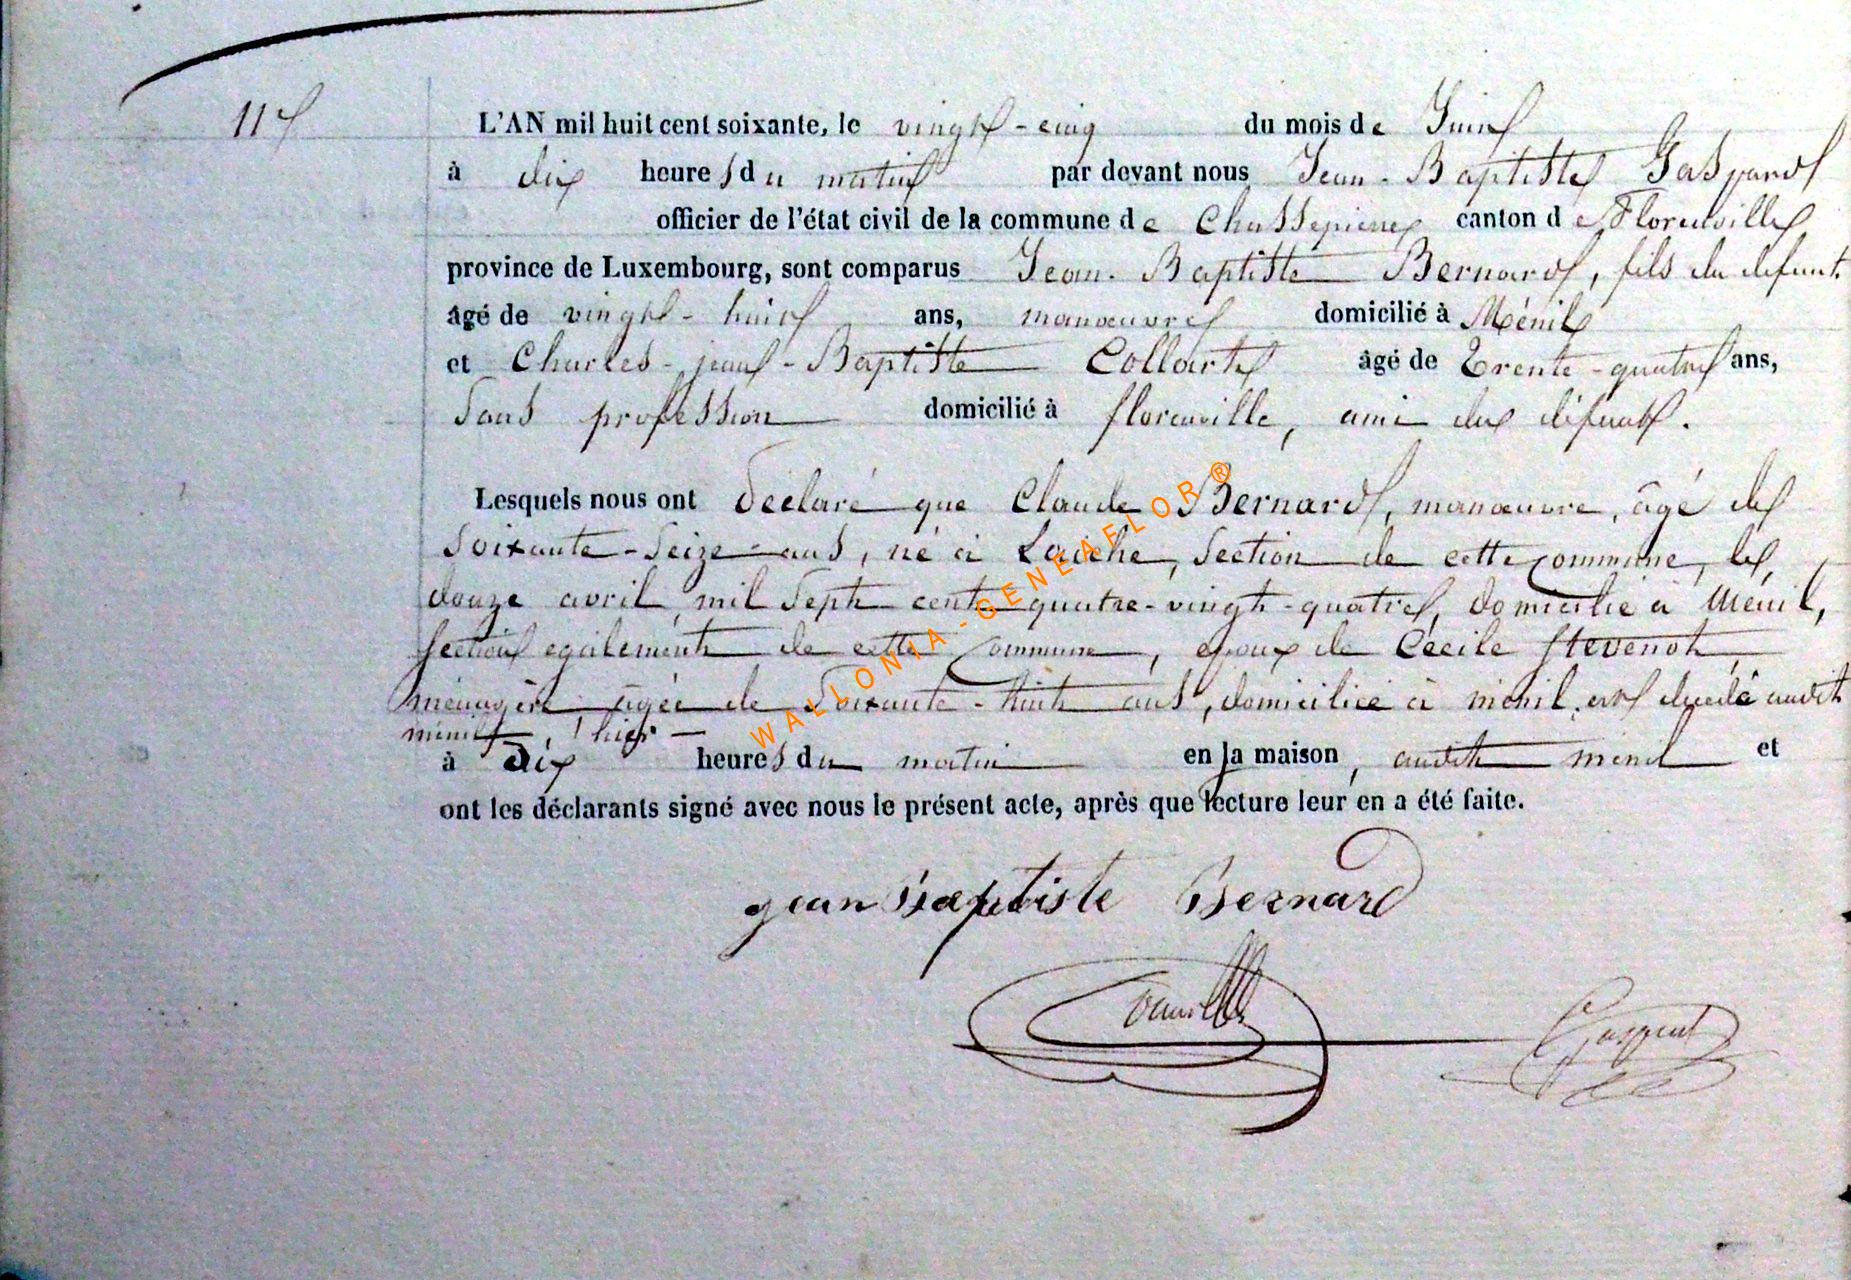 11
L'AN mil huit cent soixante, le vingt-cinq du mois de Juin
à dix heures du matin par devant nous Jean-Baptiste Gaspard
officier de l'état civil de la commune de Chassepierre canton de Florenville
province de Luxembourg, sont comparus Jean-Baptiste Bernard, fils du défunt
âgé de vingt-huit ans, manœuvre domicilié à Ménil
et Charles-jean-Baptiste Collart âgé de trente-quatre ans,
sans profession domicilié à florenville, ami du défunt.
Lesquels nous ont déclaré que Claude Bernard, manœuvre, âgé de
soixante-seize ans, né à Laiche, section de cette commune, le
douze avril mil sept cent quatre-vingt-quatre, domicilié à Menil,
section egalement de cette commune, epoux de Cécile Stevenot,
ménagère, agée de soixante-huit ans, domiciliée à menil, est decedé audit
menil, hier
à dix heures du matin en la maison, audit menil et
ont les déclarants signé avec nous le présent acte, après que lecture leur en a été faite.
WALLONIA-GENEAFLOR®
jean Baptiste Bernard
Gaspard